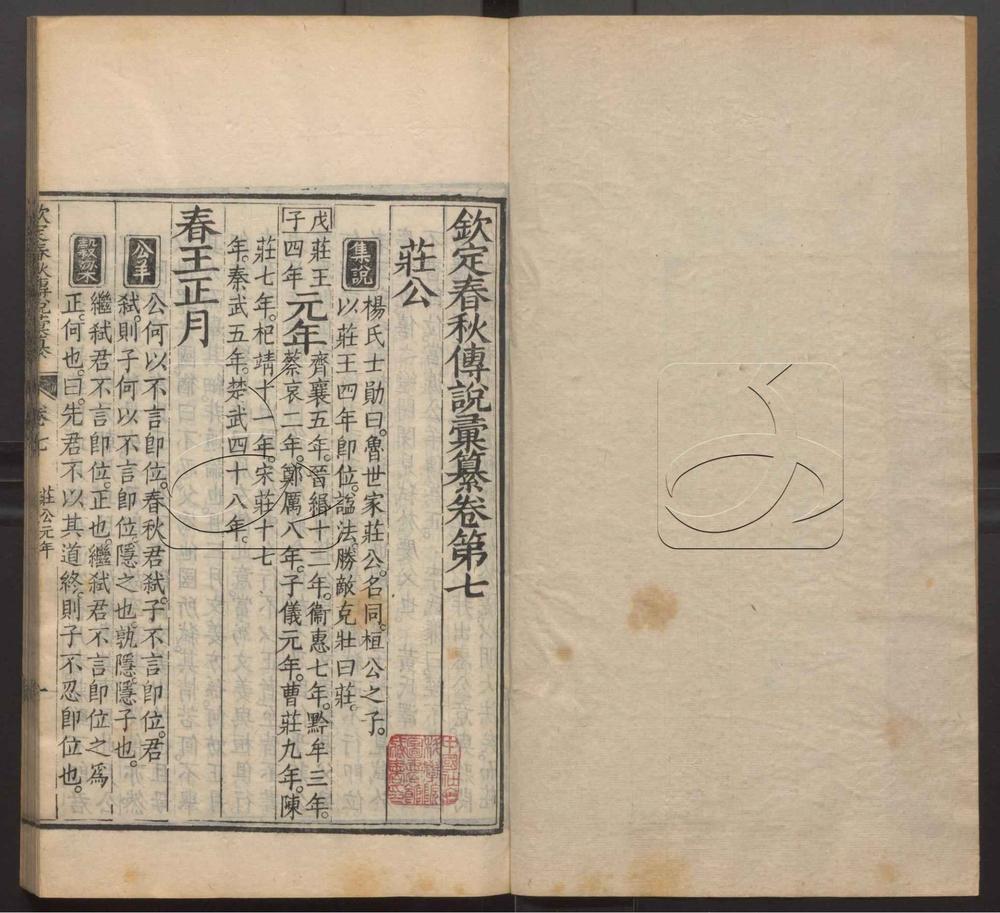 欽定春秋傳說彙纂卷第七
莊公
集說
楊氏士勛曰。魯世家莊公。名同。桓公之子。
以莊王四年卽位。謚法。勝敵克壯曰莊。
戊子
莊王四年
元年
齊襄五年。晉緡十二年。衞惠七年。黔牟三年。
蔡哀二年。鄭厲八年。子儀元年。曹莊九年。陳
莊七年。杞靖十一年。宋莊十七
年。秦武五年。楚武四十八年。
春王正月
公羊
公何以不言卽位。春秋君弑。子不言卽位。君
弑。則子何以不言卽位。隱之也。孰隱。隱子也。
穀梁
繼弑君不言卽位。正也。繼弑君不言卽位之爲
正。何也。曰。先君不以其道終。則子不忍卽位也。
欽定春秋傳說彙纂
卷七
莊公元年
一